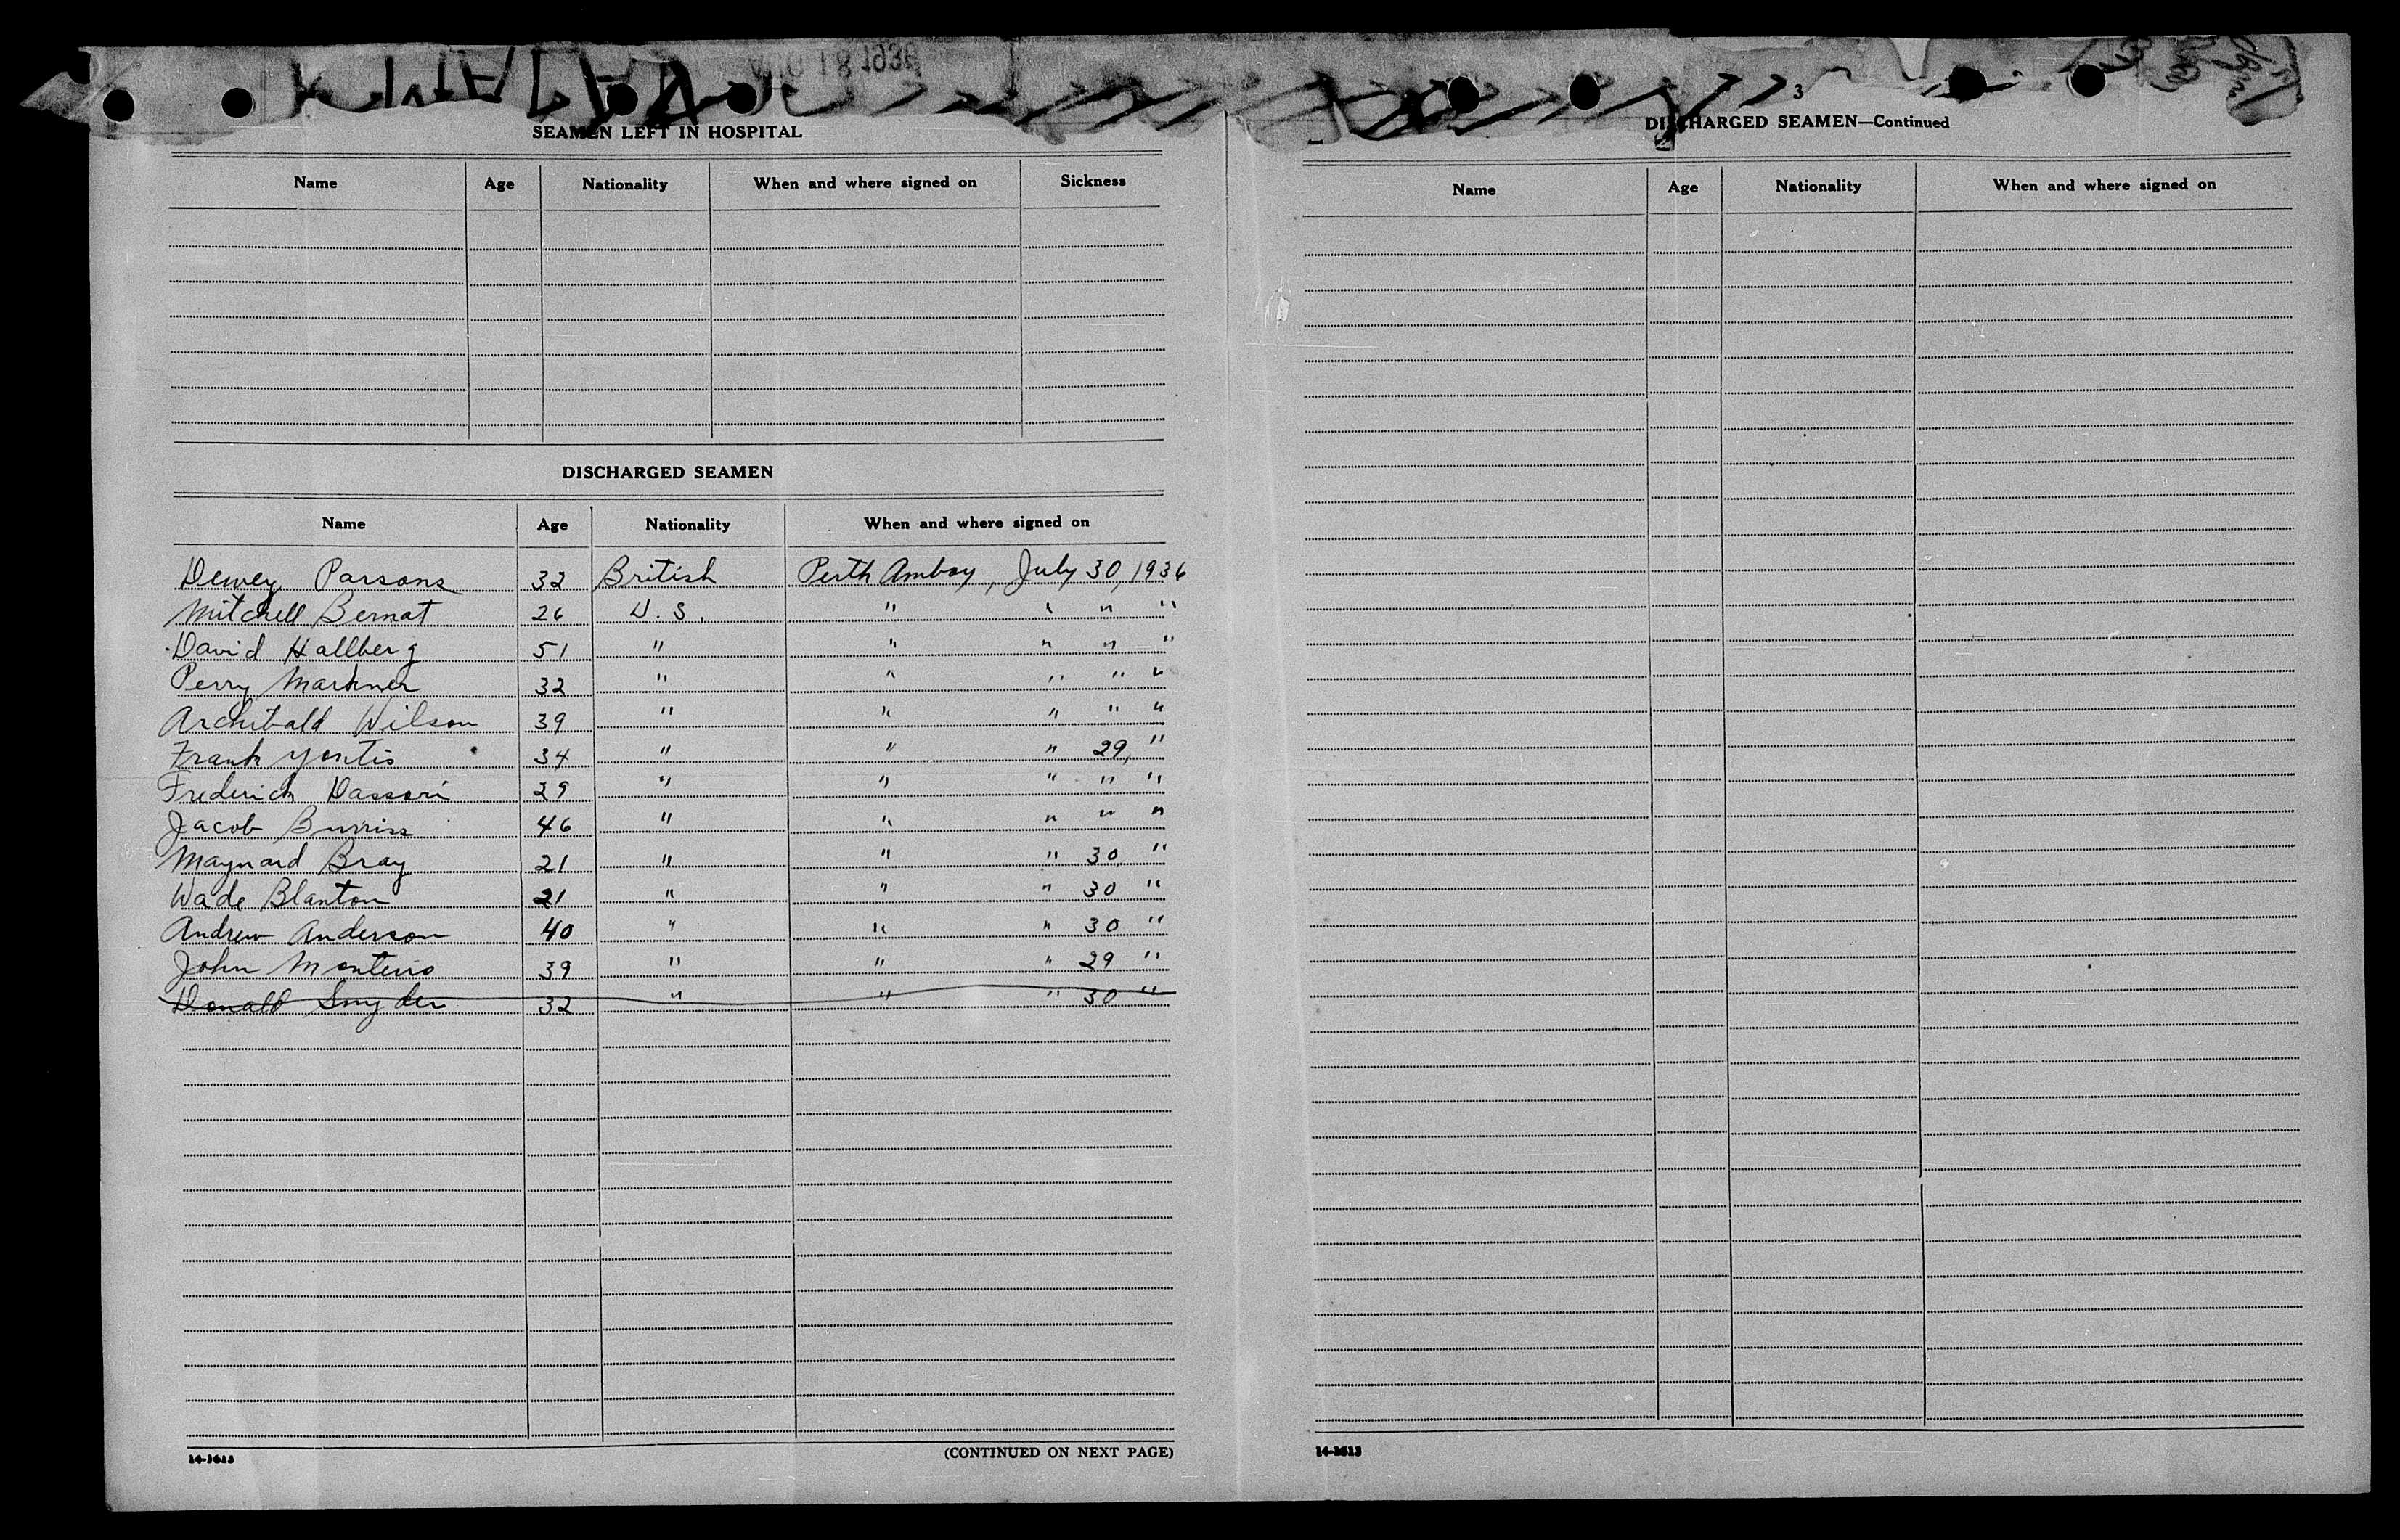 AUG 18 1936
SEAMEN LEFT IN HOSPITAL
Name Age Nationality When and where signed on Sickness
DISCHARGED SEAMEN
Name Age Nationality When and where signed on
Dewey Parsons 32 British Perth Amboy, July 30, 1936
Mitchell Bernat 26 U.S. " " " "
David Hallberg 51 " " " " "
Perry Markner 32 " " " " "
Archibald Wilson 39 " " " " "
Frank Yontis 34 " " " 29, "
Frederick Dassori 29 " " " " "
Jacob Burriss 46 " " " " "
Maynard Bray 21 " " " 30, "
Wade Blanton 21 " " " 30 "
Andrew Anderson 40 " " " 30 "
John Monterio 39 " " " 29 "
Donald Snyder 32 " " " 30 "
14-1613 (CONTINUED ON NEXT PAGE)
3
DISCHARGED SEAMEN—Continued
Name Age Nationality When and where signed on
14-1613